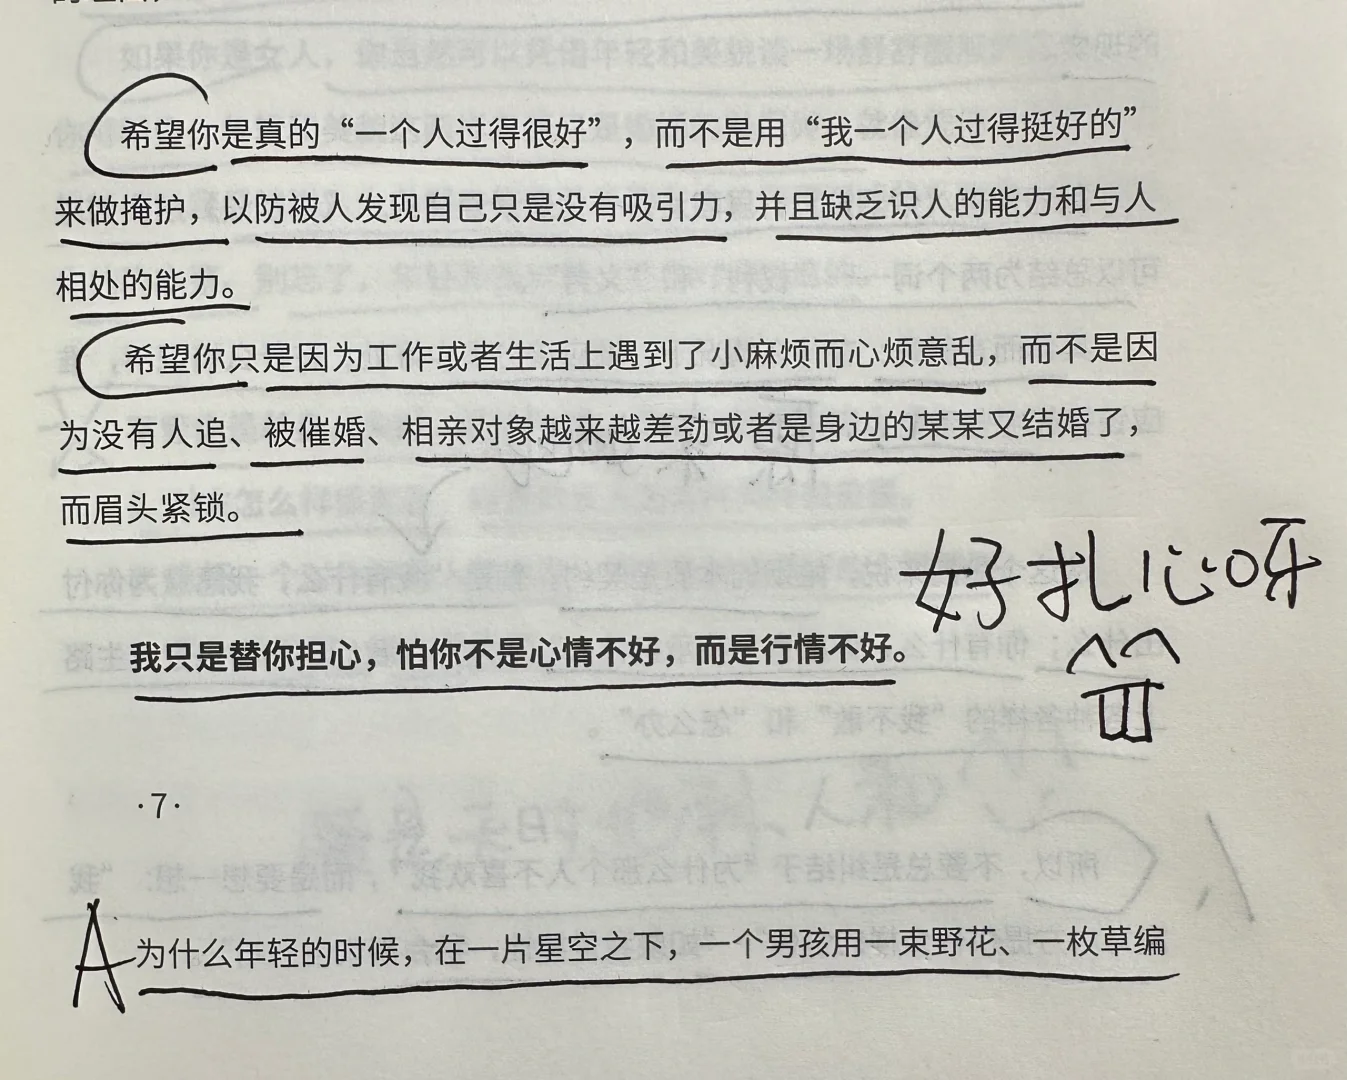 希望你是真的“一个人过得很好”，而不是用“我一个人过得挺好的”
来做掩护，以防被人发现自己只是没有吸引力，并且缺乏识人的能力和与人
相处的能力。
希望你只是因为工作或者生活上遇到了小麻烦而心烦意乱，而不是因
为没有人追、被催婚、相亲对象越来越差劲或者是身边的某某又结婚了，
而眉头紧锁。
好扎心呀
我只是替你担心，怕你不是心情不好，而是行情不好。
·7·
A 为什么年轻的时候，在一片星空之下，一个男孩用一束野花、一枚草编